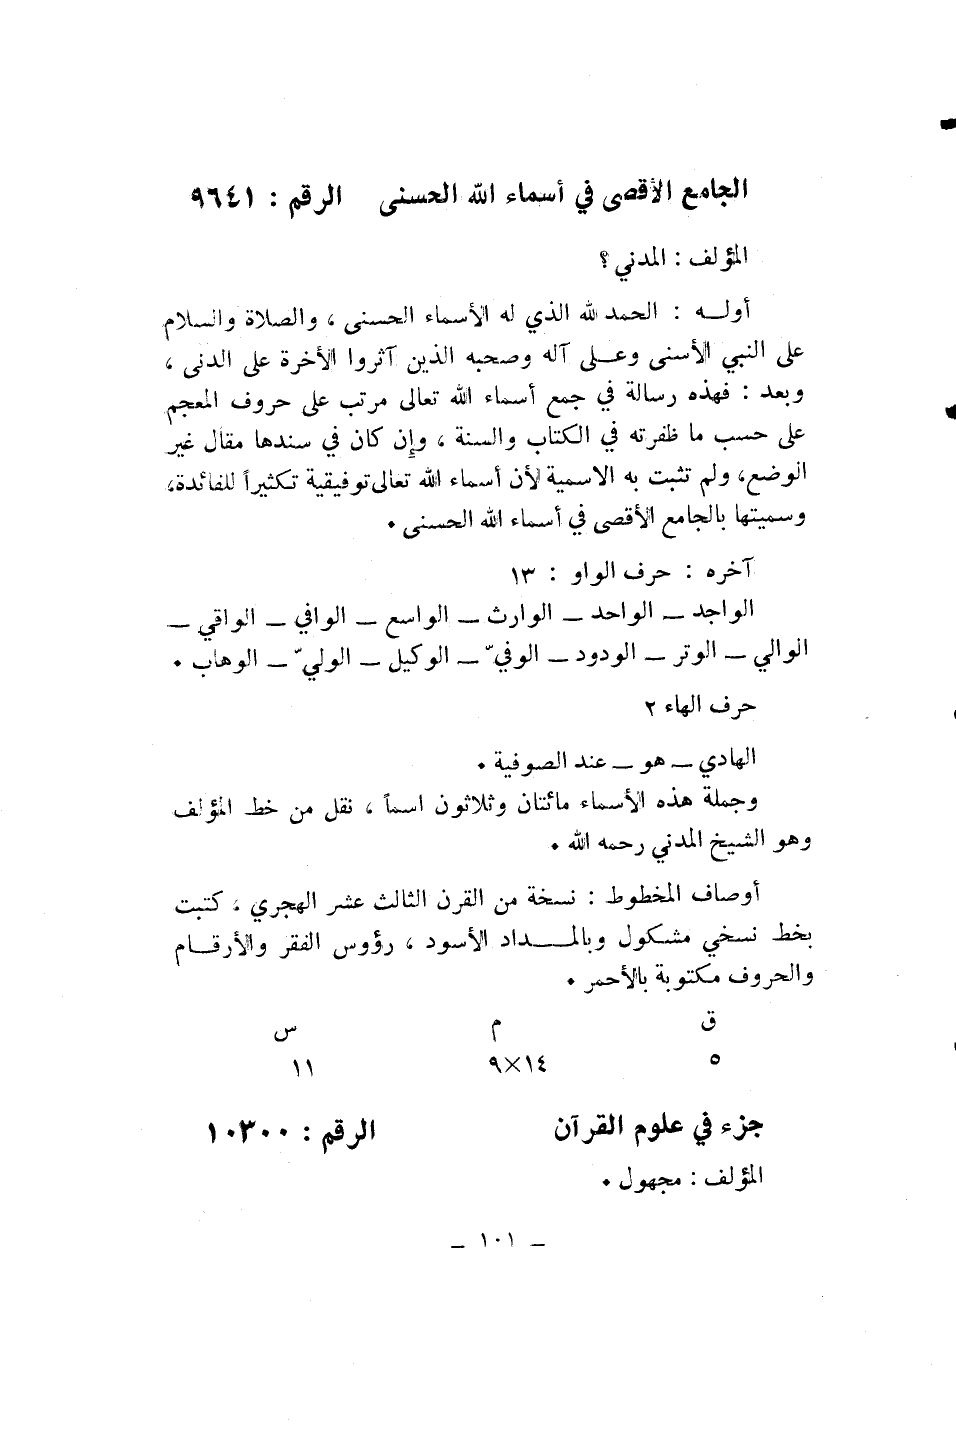 الجامع الأقصى في أسماء الله الحسنى الرقم : ٩٦٤١
المؤلف : المدني ؟
أولــه : الحمد لله الذي له الأسماء الحسنى ، والصلاة والسلام
على النبي الأسنى وعــلى آله وصحبه الذين آثروا الأخرة على الدنى ،
وبعد : فهذه رسالة في جمع أسماء الله تعالى مرتب على حروف المعجم
على حسب ما ظفرته في الكتاب والسنة ، وإن كان في سندها مقال غير
الوضع، ولم تثبت به الاسمية لأن أسماء الله تعالى توفيقية تكثيراً للفائدة،
وسميتها بالجامع الأقصى في أسماء الله الحسنى .
آخره : حرف الواو : ١٣
الواجد ــ الواحد ــ الوارث ــ الواسع ــ الوافي ــ الواقي ــ
الوالي ــ الوتر ــ الودود ــ الوفيّ ــ الوكيل ــ الوليّ ــ الوهاب .
حرف الهاء ٢
الهادي ــ هو ــ عند الصوفية .
وجملة هذه الأسماء مائتان وثلاثون اسماً ، نقل من خط المؤلف
وهو الشيخ المدني رحمه الله .
أوصاف المخطوط : نسخة من القرن الثالث عشر الهجري ، كتبت
بخط نسخي مشكول وبالمــداد الأسود ، رؤوس الفقر والأرقــام
والحروف مكتوبة بالأحمر .
ق م س
٥ ١٤×٩ ١١
جزء في علوم القرآن الرقم : ١٠٣٠٠
المؤلف : مجهول .
ــ ١٠١ ــ